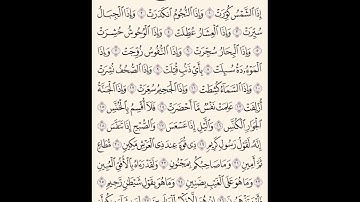 إِذَا ٱلشَّمْسُ كُوِّرَتْ ۝ وَإِذَا ٱلنُّجُومُ ٱنكَدَرَتْ ۝ وَإِذَا ٱلْجِبَالُ
سُيِّرَتْ ۝ وَإِذَا ٱلْعِشَارُ عُطِّلَتْ ۝ وَإِذَا ٱلْوُحُوشُ حُشِرَتْ
۝ وَإِذَا ٱلْبِحَارُ سُجِّرَتْ ۝ وَإِذَا ٱلنُّفُوسُ زُوِّجَتْ ۝ وَإِذَا
ٱلْمَوْءُۥدَةُ سُئِلَتْ ۝ بِأَىِّ ذَنۢبٍ قُتِلَتْ ۝ وَإِذَا ٱلصُّحُفُ نُشِرَتْ
۝ وَإِذَا ٱلسَّمَآءُ كُشِطَتْ ۝ وَإِذَا ٱلْجَحِيمُ سُعِّرَتْ ۝ وَإِذَا ٱلْجَنَّةُ
أُزْلِفَتْ ۝ عَلِمَتْ نَفْسٌ مَّآ أَحْضَرَتْ ۝ فَلَآ أُقْسِمُ بِٱلْخُنَّسِ
۝ ٱلْجَوَارِ ٱلْكُنَّسِ ۝ وَٱلَّيْلِ إِذَا عَسْعَسَ ۝ وَٱلصُّبْحِ إِذَا تَنَفَّسَ ۝
إِنَّهُۥ لَقَوْلُ رَسُولٍ كَرِيمٍ ۝ ذِى قُوَّةٍ عِندَ ذِى ٱلْعَرْشِ مَكِينٍ ۝ مُّطَاعٍ
ثَمَّ أَمِينٍ ۝ وَمَا صَاحِبُكُم بِمَجْنُونٍ ۝ وَلَقَدْ رَءَاهُ بِٱلْأُفُقِ ٱلْمُبِينِ
۝ وَمَا هُوَ عَلَى ٱلْغَيْبِ بِضَنِينٍ ۝ وَمَا هُوَ بِقَوْلِ شَيْطَٰنٍ رَّجِيمٍ